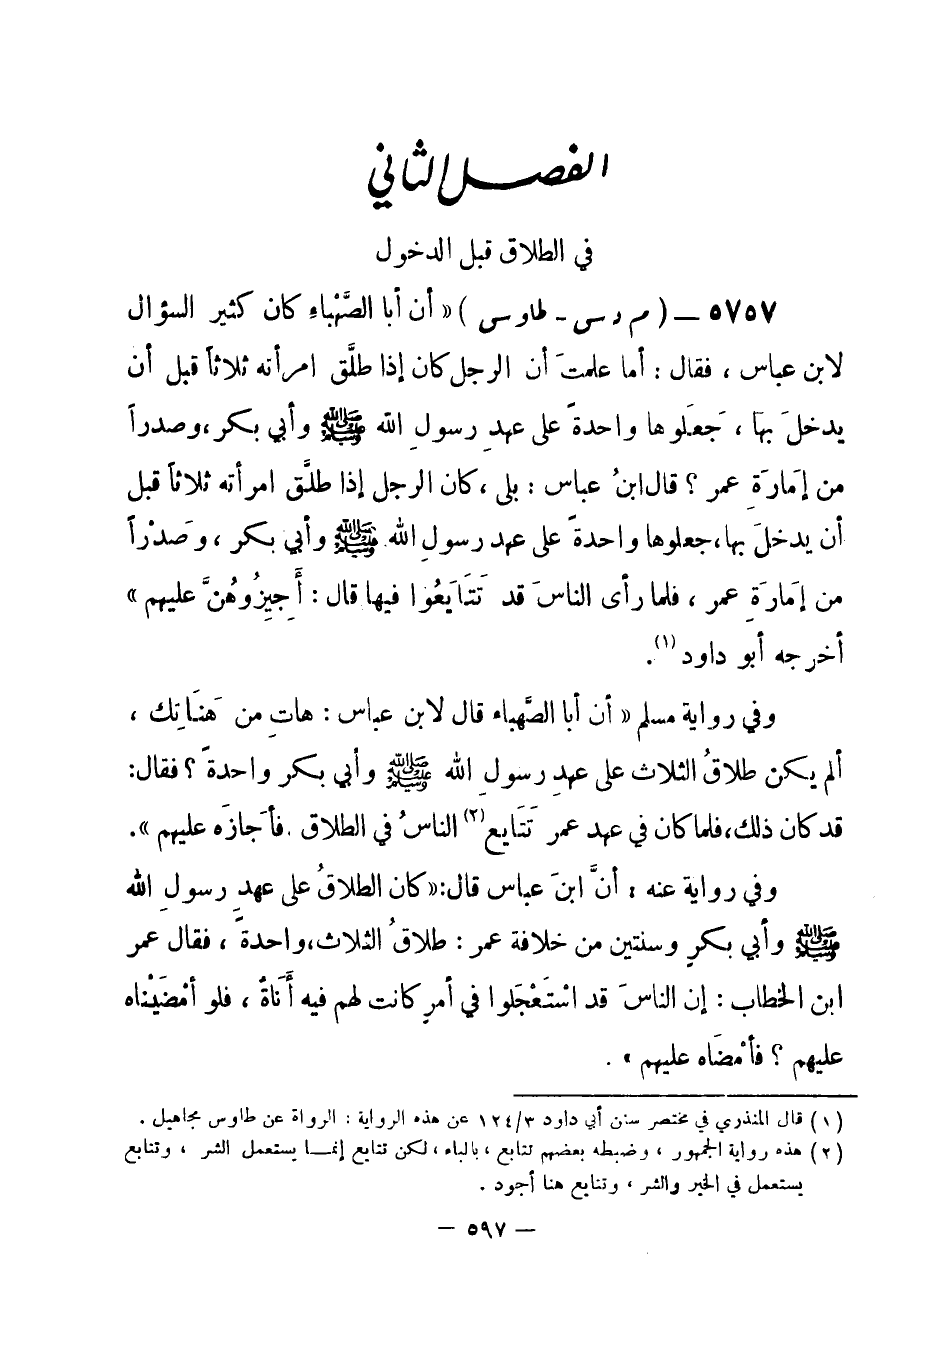 الفصل الثاني
في الطلاق قبل الدخول
٥٧٥٧ – ( م د س - طاوس ) « أن أبا الصَّهْباءِ كان كثير السؤال
لابن عباس ، فقال : أما علمتَ أن الرجل كان إذا طلَّق امرأته ثلاثاً قبل أن
يدخلَ بها ، جَعَلوها واحدةً على عهدِ رسولِ الله ﷺ وأبي بكر ، وصدراً
من إمَارَةِ عمر ؟ قال ابنُ عباس : بلى ، كان الرجل إذا طلَّق امرأته ثلاثاً قبل
أن يدخلَ بها ، جعلوها واحدةً على عهد رسولِ الله ﷺ وأبي بكر ، وصَدْراً
من إمَارَةِ عمر ، فلما رأى الناسَ قد تَتَايَعُوا فيها قال : أَجِيزُوهُنَّ عليهم »
أخرجه أبو داود (١).
وفي رواية مسلم « أن أبا الصَّهباء قال لابن عباس : هاتِ من هَنَاتِك ،
ألم يكن طلاقُ الثلاث على عهدِ رسولِ الله ﷺ وأبي بكر واحدةً ؟ فقال :
قد كان ذلك ، فلما كان في عهد عمر تَتَايع (٢) الناسُ في الطلاق . فأجازَه عليهم ».
وفي رواية عنه : أنَّ ابنَ عباس قال : « كان الطلاقُ على عهدِ رسولِ الله
ﷺ وأبي بكرٍ وسنتين من خلافة عمر : طلاقُ الثلاث ، واحدةً ، فقال عمر
ابن الخطاب : إن الناسَ قد اسْتَعْجَلوا في أمرٍ كانت لهم فيه أَنَاةٌ ، فلو أمْضَيْناه
عليهم ؟ فأمْضَاه عليهم » .
(١) قال المنذري في مختصر سنن أبي داود ١٢٤/٣ عن هذه الرواية : الرواة عن طاوس مجاهيل .
(٢) هذه رواية الجمهور ، وضبطه بعضهم تتابع ، بالباء ، لكن تتايع إنما يستعمل الشر ، وتتابع
يستعمل في الخير والشر ، وتتايع هنا أجود .
– ٥٩٧ –